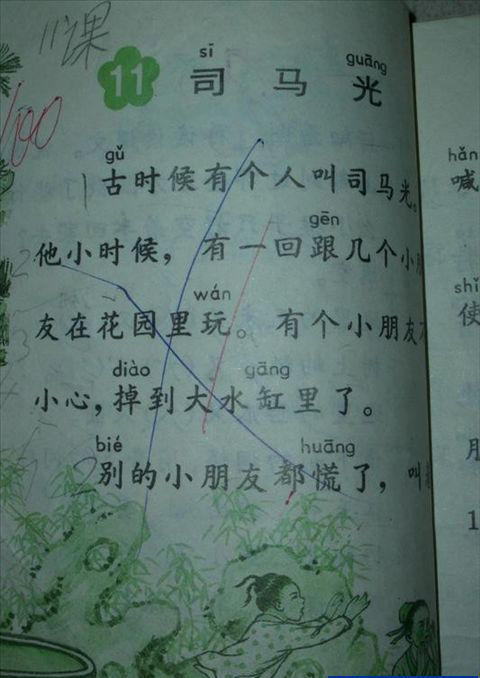 11课
sī guāng
11 司马光
100
gǔ
古时候有个人叫司马光。
gēn
他小时候，有一回跟几个小
wán
友在花园里玩。有个小朋友
diào gāng
小心，掉到大水缸里了。
bié huāng
别的小朋友都慌了，叫
hǎn
喊
shǐ
使
1